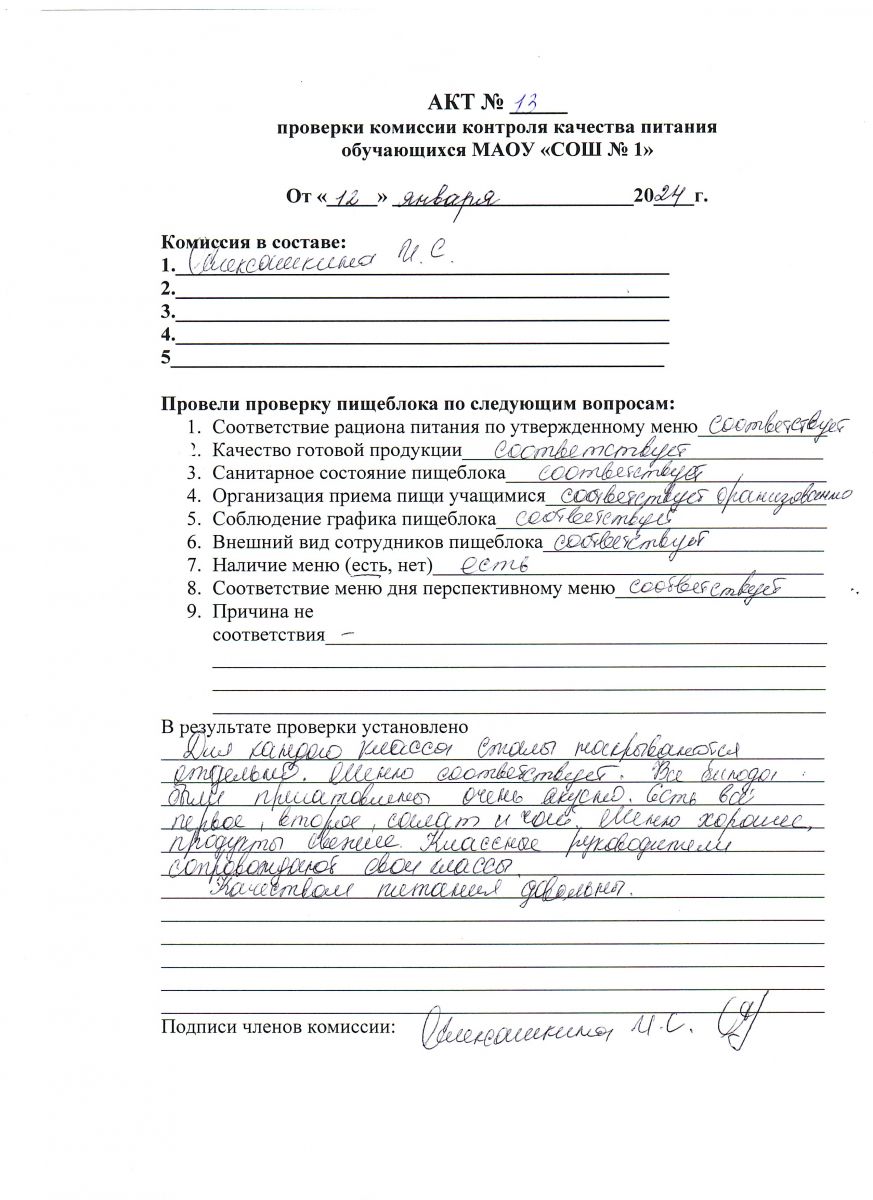 АКТ № 13
проверки комиссии контроля качества питания
обучающихся МАОУ «СОШ № 1»
От «12» января 2024 г.
Комиссия в составе:
1. Алексашкина И. С.
2.
3.
4.
5
Провели проверку пищеблока по следующим вопросам:
1. Соответствие рациона питания по утвержденному меню соответствует
2. Качество готовой продукции соответствует
3. Санитарное состояние пищеблока соответствует
4. Организация приема пищи учащимися соответствует организованно
5. Соблюдение графика пищеблока соответствует
6. Внешний вид сотрудников пищеблока соответствует
7. Наличие меню (есть, нет) есть
8. Соответствие меню дня перспективному меню соответствует
9. Причина не
соответствия –
В результате проверки установлено
Для каждого класса столы накрываются
отдельно. Меню соответствует. Все блюда
были приготовлены очень вкусно. Есть всё
первое, второе, салат и чай. Меню хорошее,
продукты свежие. Классные руководители
сопровождают свои классы.
Качеством питания довольны.
Подписи членов комиссии: Алексашкина И. С.